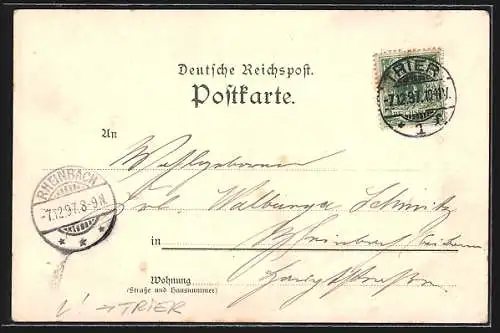 Deutsche Reichspost.
Postkarte.
TRIER
-7.12.97.10-11V.
* 1 f
An
Wohlgeboren
Frl. Walburga Schmitz
RHEINBACH
-7.12.97.8-9N.
* * *
in Rheinbach bei Bonn
Hauptstrasse
Wohnung
(Straße und Hausnummer)
→TRIER